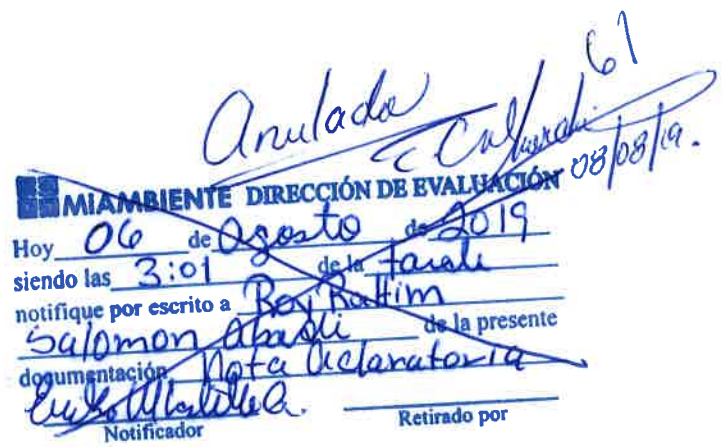 61
Anulado
08/08/19.
MIAMBIENTE DIRECCIÓN DE EVALUACIÓN
Hoy 06 de Agosto de 2019
siendo las 3:01 de la tarde
notifique por escrito a
Salomon de la presente
documentación Nota Aclaratoria
Notificador Retirado por